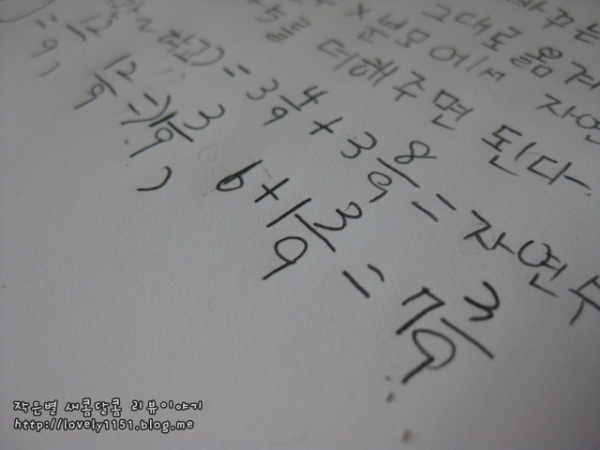 바꾸는
그대로 옮겨
× 분모 에서 자연
더해 주면 된다.
= 3 4/9 + 3 8/9 = 자연수
12/9 = 1 3/9,
6 + 1 3/9 = 7 3/9
작은별 새콤달콤 리뷰이야기
http://lovely1151.blog.me